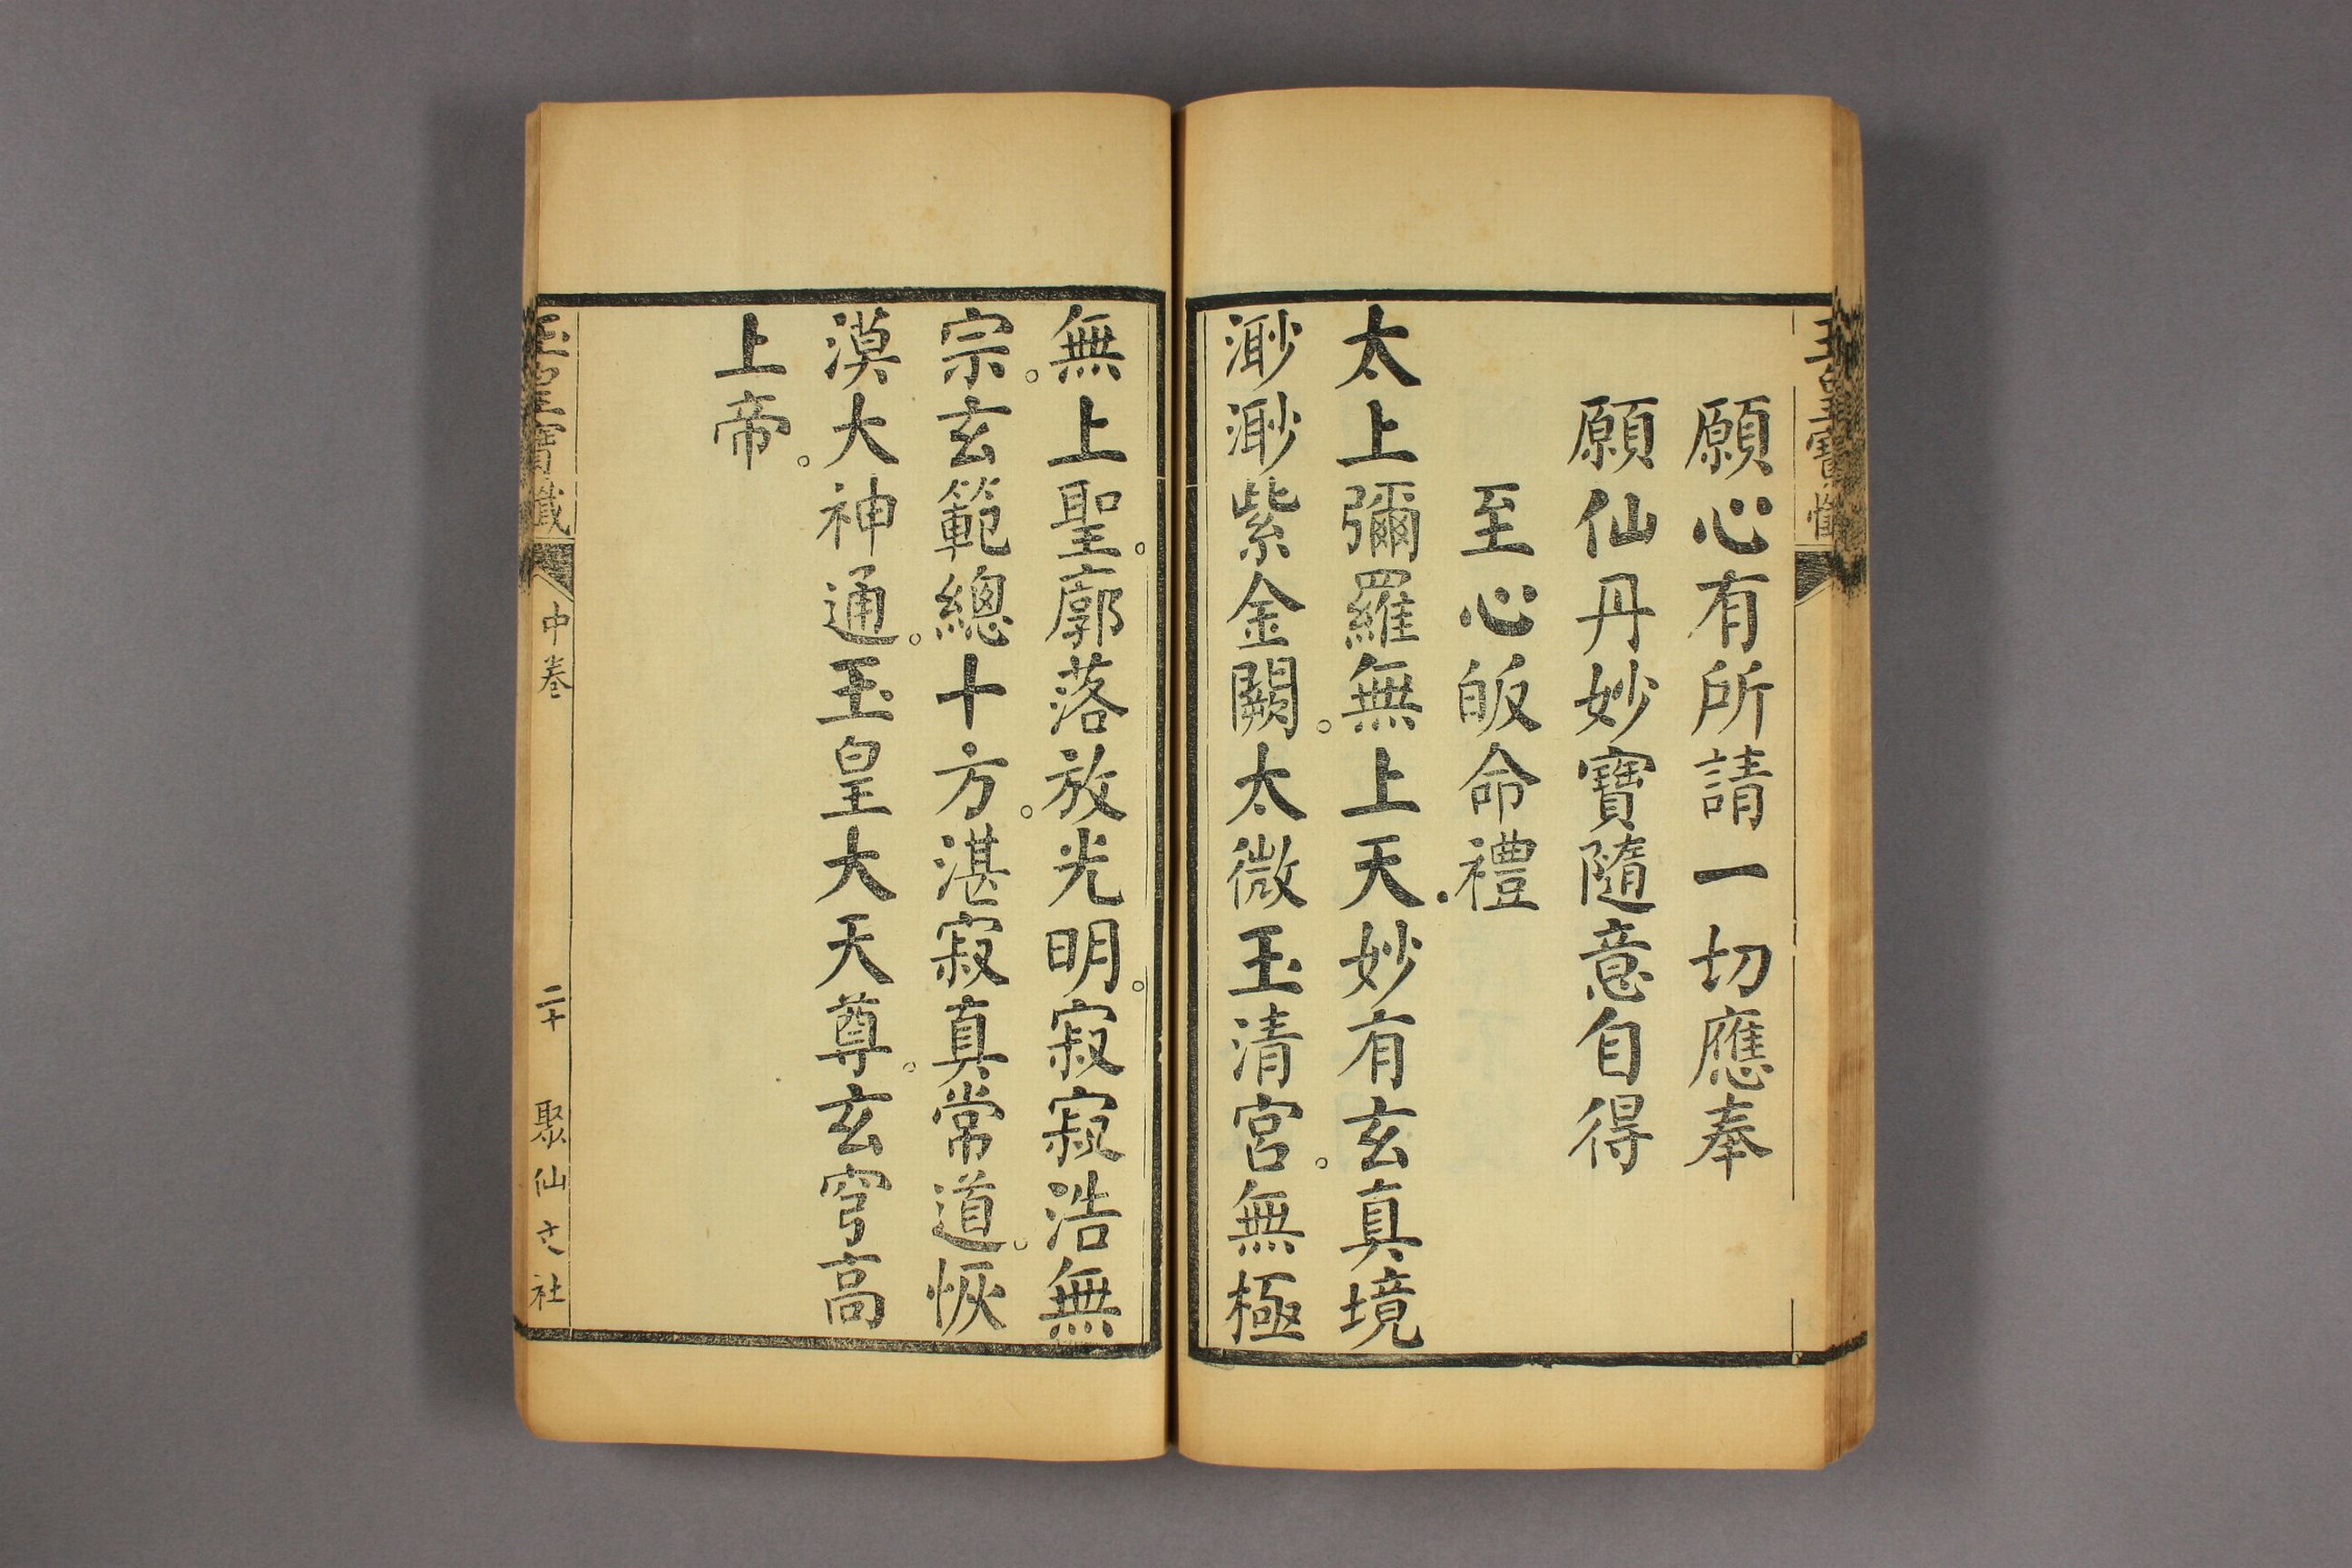 玉皇寶懺
願心有所請一切應奉
願仙丹妙寶隨意自得
至心皈命禮
太上彌羅無上天妙有玄真境
渺渺紫金闕。太微玉清宮。無極
無上聖。廓落放光明。寂寂浩無
宗。玄範總十方。湛寂真常道。恢
漠大神通。玉皇大天尊。玄穹高
上帝。
玉皇寶懺 中卷 二十 聚仙文社